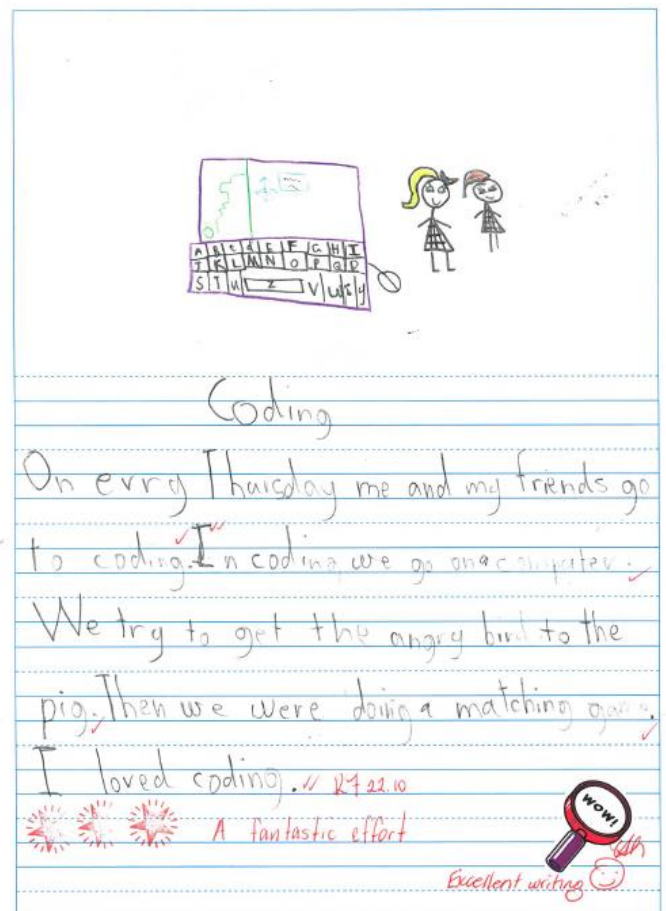 A B C d E F G H I
J K L M N O P Q R
S T U Z V W X y
Coding
On evrry Thuisday me and my friends go
to coding. In coding we go on a computer.
We try to get the angry bird to the
pig. Then we were doing a matching game.
I loved coding.
22.10
A fantastic effort
WOW!
Excellent writing